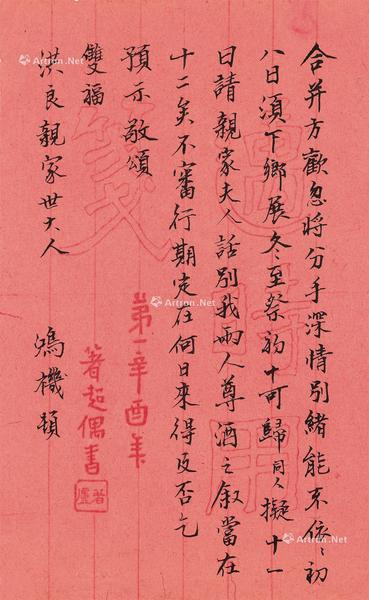 合并方歡忽將分手深情別緒能不依〻初
八日須下鄉展冬至祭初十可歸同人擬十一
日請親家夫人話別我兩人尊酒之敘當在
十二矣不審行期定在何日來得及否乞
預示敬頌
雙福
洪良親家世大人
鴆機頓
第一辛酉年
箸超偶書
箸廬
箋
用
Artron.Net
Artron.Net
Artron.Net
Artron.Net
Artron.Net